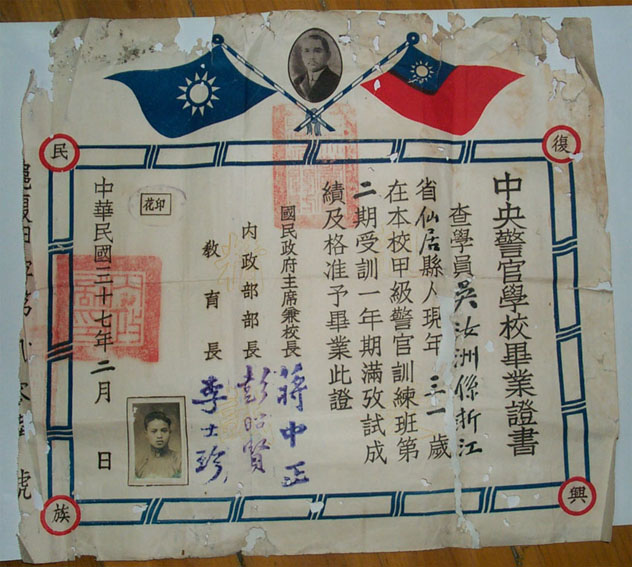 復興民族
中央警官學校畢業證書
查學員吳汝洲係浙江
省仙居縣人現年三一歲
在本校甲級警官訓練班第
二期受訓一年期滿攷試成
績及格准予畢業此證
國民政府主席兼校長 蔣中正
內政部部長 彭昭賢
教育長 李士珍
印花
中華民國三十七年二月 日
號